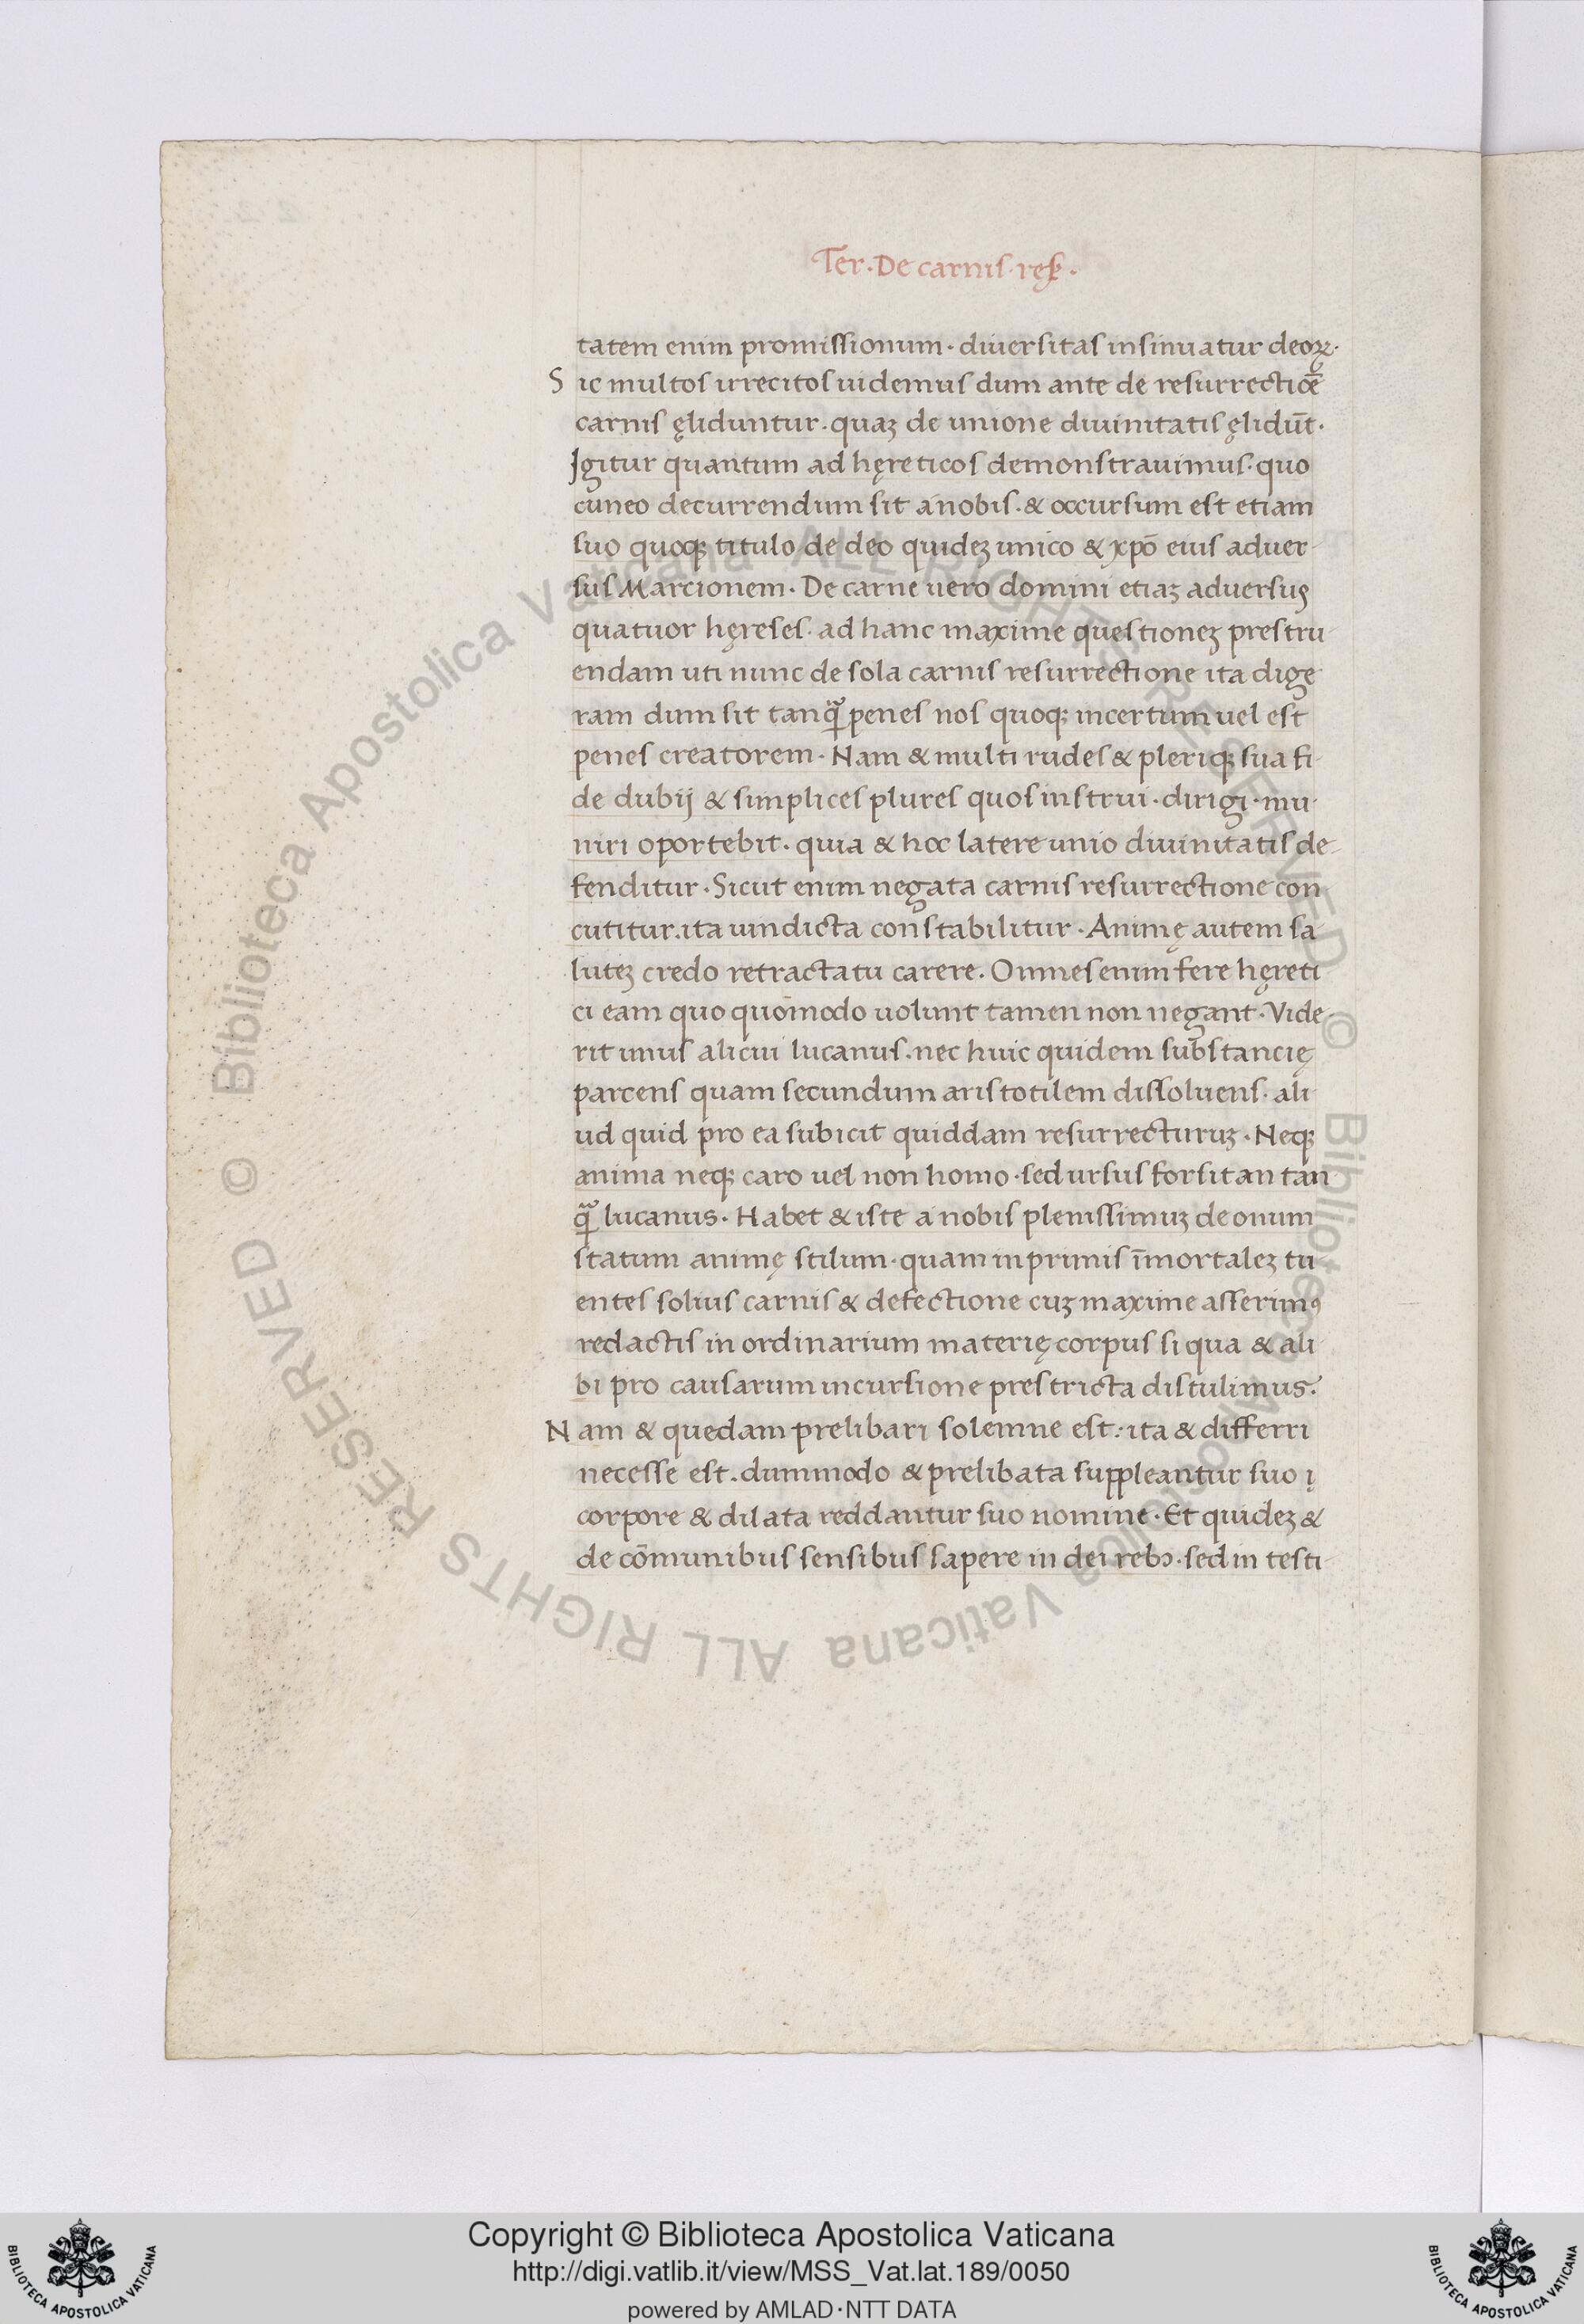 Ter. De carnis. reſ.
tatem enim promissionum. diuersitas insinuatur deoꝝ.
Sic multos irrecitos uidemus dum ante de resurrectiōe
carnis ęliduntur. quaꝫ de unione diuinitatis ęlidūt.
Igitur quantum ad hęreticos demonstrauimus. quo
cuneo decurrendum sit a nobis. & occursum est etiam
suo quoqꝫ titulo de deo quideꝫ unico & xpō eius aduer-
sus Marcionem. De carne uero domini etiaꝫ aduersus
quatuor hęreses. ad hanc maxime questioneꝫ prestru-
endam uti nunc de sola carnis resurrectione ita dige-
ram dum sit tanꝗ̃ penes nos quoqꝫ incertum uel est
penes creatorem. Nam & multi rudes & pleriqꝫ sua fi-
de dubij & simplices plures quos instrui. dirigi. mu-
niri oportebit. quia & hoc latere unio diuinitatis de-
fenditur. Sicut enim negata carnis resurrectione con-
cutitur. ita uindicta constabilitur. Animę autem sa
luteꝫ credo retractatu carere. Omnes enim fere hęreti
ci eam quo quōmodo uolunt tamen non negant. Vide-
rit unus alicui lucanus. nec huic quidem substancię
parcens quam secundum aristotilem dissoluens. ali
ud quid pro ea subicit quiddam resurrecturuꝫ. Neqꝫ
anima neqꝫ caro uel non homo. sed ursus forsitan tan
ꝗ̃ lucanus. Habet & iste a nobis plenissimuꝫ de onum
statum animę stilum. quam in primis īmortaleꝫ tu
entes solius carnis & defectione cuꝫ maxime asserimꝰ
redactis in ordinarium materię corpus si qua & ali
bi pro causarum incursione prestricta distulimus.
Nam & quedam prelibari solemne est: ita & differri
necesse est. dummodo & prelibata suppleantur suo ı
corpore & dilata reddantur suo nomine. Et quideꝫ &
de cōmunibus sensibus sapere in dei rebꝰ. sed in testi-
© Biblioteca Apostolica Vaticana ALL RIGHTS RESERVED © Biblioteca Apostolica Vaticana ALL RIGHTS RESERVED
Copyright © Biblioteca Apostolica Vaticana
http://digi.vatlib.it/view/MSS_Vat.lat.189/0050
powered by AMLAD·NTT DATA
BIBLIOTECA APOSTOLICA VATICANA
BIBLIOTECA APOSTOLICA VATICANA